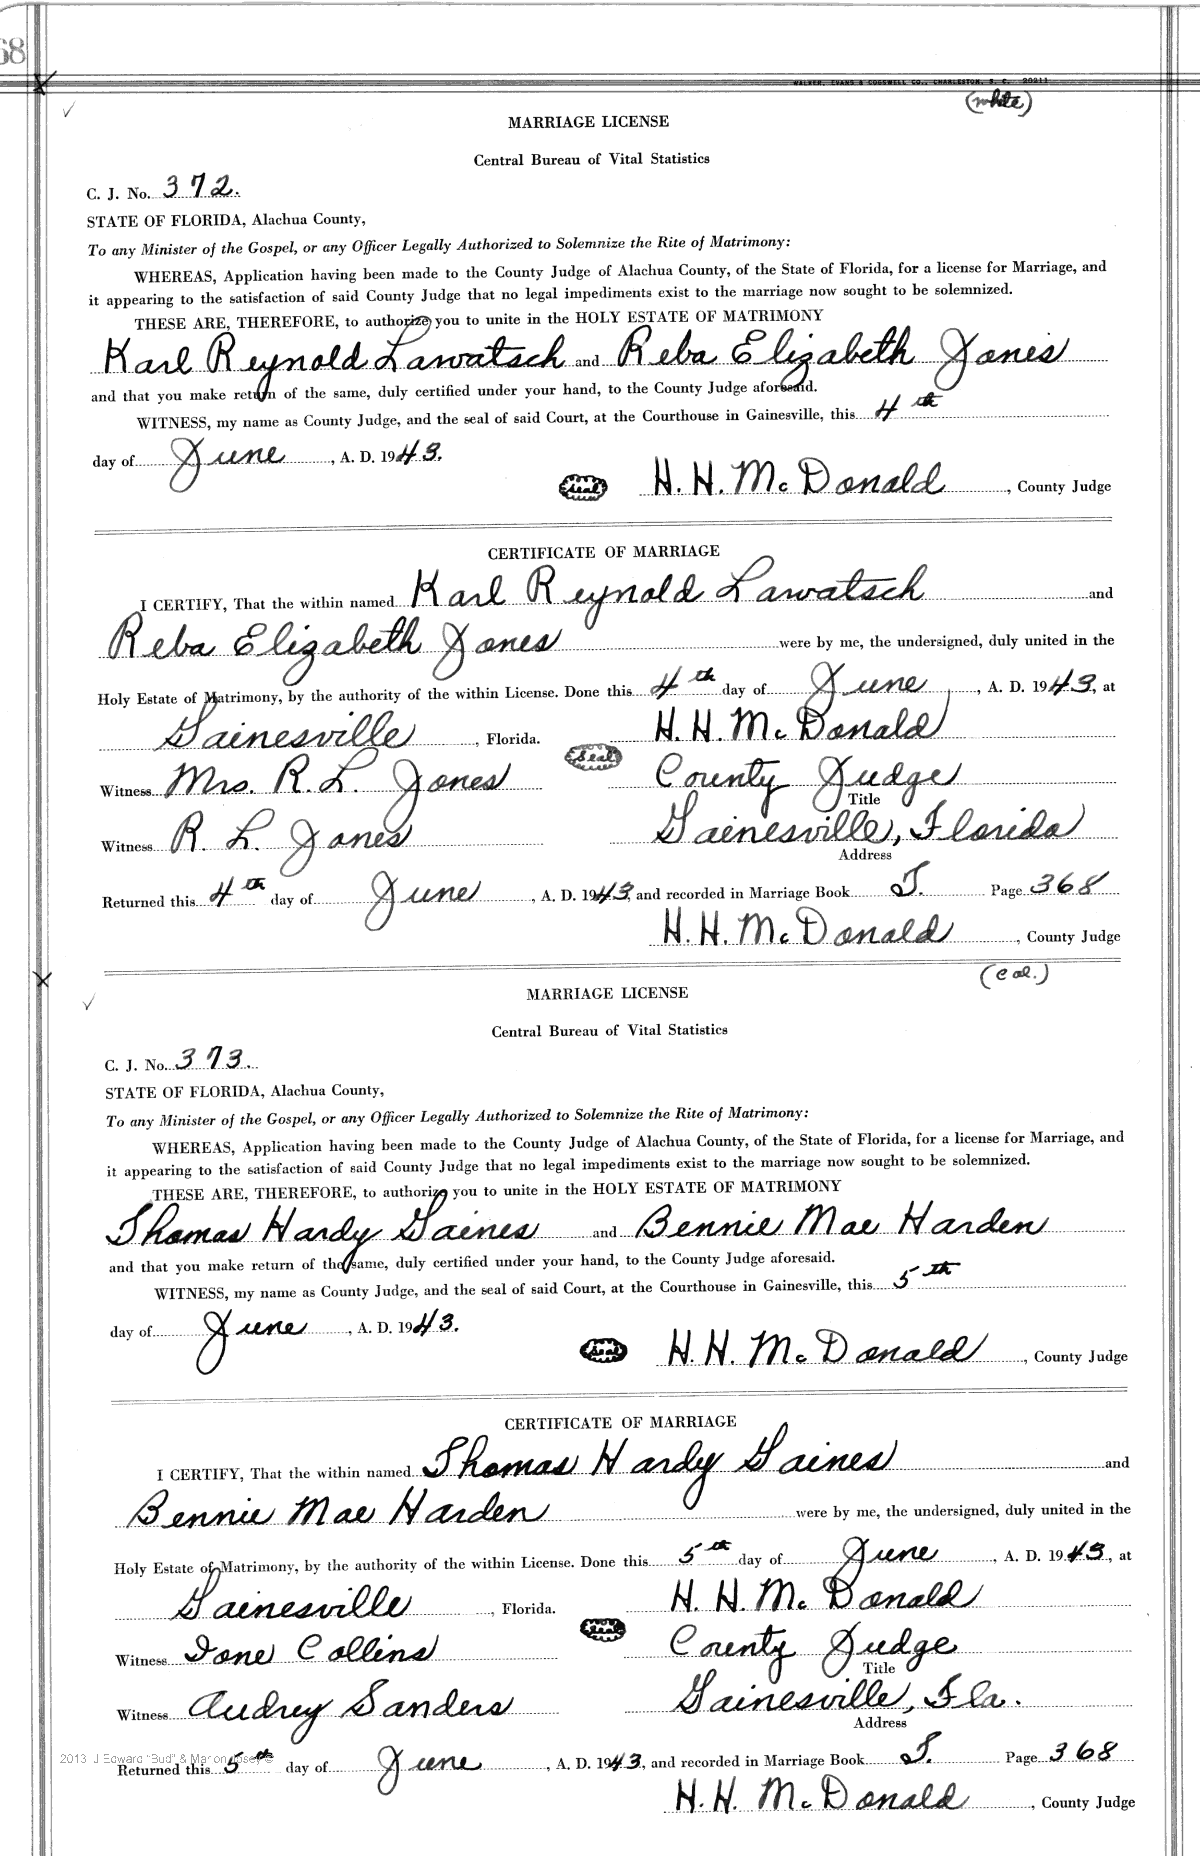 68
WALKER, EVANS & COGSWELL CO., CHARLESTON, S. C. 20211
(white)
MARRIAGE LICENSE
Central Bureau of Vital Statistics
C. J. No. 372.
STATE OF FLORIDA, Alachua County,
To any Minister of the Gospel, or any Officer Legally Authorized to Solemnize the Rite of Matrimony:
WHEREAS, Application having been made to the County Judge of Alachua County, of the State of Florida, for a license for Marriage, and
it appearing to the satisfaction of said County Judge that no legal impediments exist to the marriage now sought to be solemnized.
THESE ARE, THEREFORE, to authorize you to unite in the HOLY ESTATE OF MATRIMONY
Karl Reynold Lawatsch and Reba Elizabeth Jones
and that you make return of the same, duly certified under your hand, to the County Judge aforesaid.
WITNESS, my name as County Judge, and the seal of said Court, at the Courthouse in Gainesville, this 4th
day of June, A. D. 1943.
Seal H. H. McDonald, County Judge
CERTIFICATE OF MARRIAGE
I CERTIFY, That the within named Karl Reynold Lawatsch and
Reba Elizabeth Jones were by me, the undersigned, duly united in the
Holy Estate of Matrimony, by the authority of the within License. Done this 4th day of June, A. D. 1943, at
Gainesville, Florida. H. H. McDonald
Seal
Witness Mrs. R. L. Jones County Judge
Title
Witness R. L. Jones Gainesville, Florida
Address
Returned this 4th day of June, A. D. 1943, and recorded in Marriage Book T. Page 368
H. H. McDonald, County Judge
(Col.)
MARRIAGE LICENSE
Central Bureau of Vital Statistics
C. J. No. 373.
STATE OF FLORIDA, Alachua County,
To any Minister of the Gospel, or any Officer Legally Authorized to Solemnize the Rite of Matrimony:
WHEREAS, Application having been made to the County Judge of Alachua County, of the State of Florida, for a license for Marriage, and
it appearing to the satisfaction of said County Judge that no legal impediments exist to the marriage now sought to be solemnized.
THESE ARE, THEREFORE, to authorize you to unite in the HOLY ESTATE OF MATRIMONY
Thomas Hardy Gaines and Bennie Mae Harden
and that you make return of the same, duly certified under your hand, to the County Judge aforesaid.
WITNESS, my name as County Judge, and the seal of said Court, at the Courthouse in Gainesville, this 5th
day of June, A. D. 1943.
Seal H. H. McDonald, County Judge
CERTIFICATE OF MARRIAGE
I CERTIFY, That the within named Thomas Hardy Gaines and
Bennie Mae Harden were by me, the undersigned, duly united in the
Holy Estate of Matrimony, by the authority of the within License. Done this 5th day of June, A. D. 1943, at
Gainesville, Florida. H. H. McDonald
Seal
Witness Ione Collins County Judge
Title
Witness Audrey Sanders Gainesville, Fla.
Address
2013 J Edward "Bud" & Marion Josey ©
Returned this 5th day of June, A. D. 1943, and recorded in Marriage Book T. Page 368
H. H. McDonald, County Judge